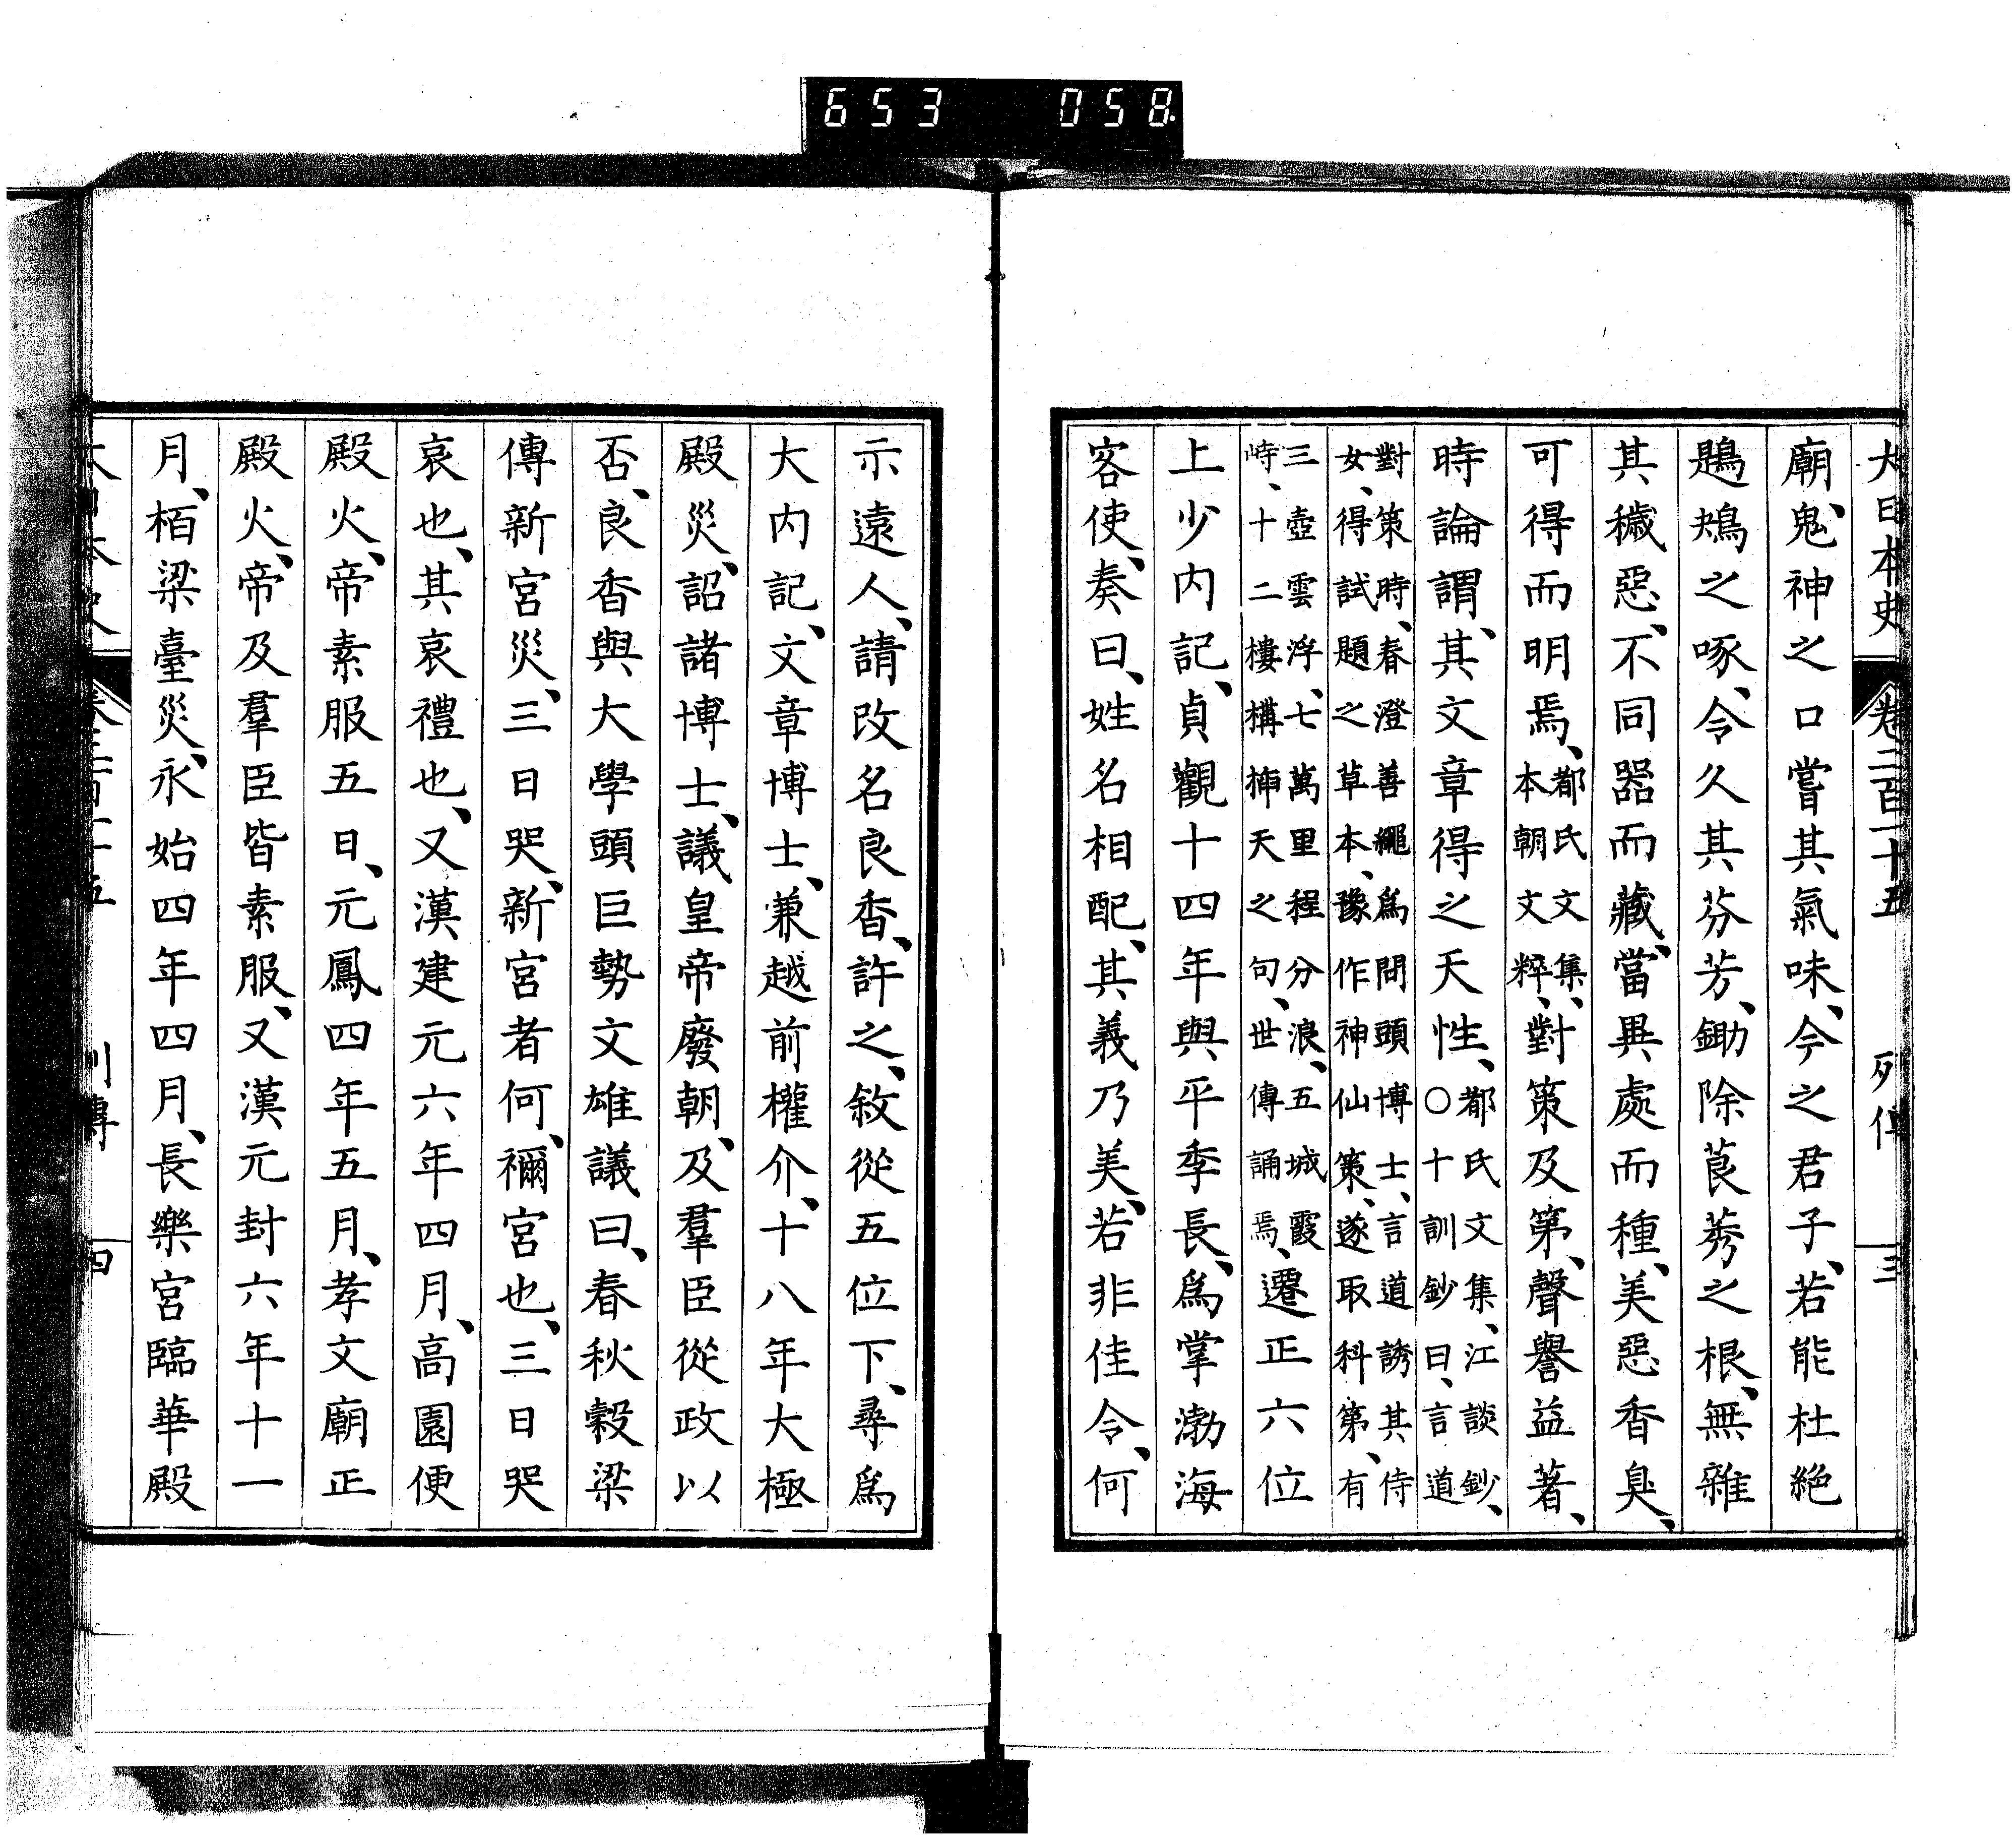 653 058
大日本史 卷二百十五 列傳 三
廟、鬼神之口嘗其氣味、今之君子、若能杜絕
鶗鴂之啄、令久其芬芳、鋤除莨莠之根、無雜
其穢惡、不同器而藏、當異處而種、美惡香臭、
可得而明焉、都氏文集、本朝文粹、對策及第、聲譽益著、
時論謂、其文章得之天性、都氏文集、江談鈔、〇十訓鈔曰、言道
對策時、春澄善繩爲問頭博士、言道誘其侍
女、得試題之草本、豫作神仙策、遂取科第、有
三壺雲浮、七萬里程分浪、五城霞
峙、十二樓構插天之句、世傳誦焉、遷正六位
上少內記、貞觀十四年與平季長、爲掌渤海
客使、奏曰、姓名相配、其義乃美、若非佳令、何
示遠人、請改名良香、許之、敘從五位下、尋爲
大內記、文章博士、兼越前權介、十八年大極
殿災、詔諸博士、議皇帝廢朝、及羣臣從政以
否、良香與大學頭巨勢文雄議曰、春秋穀梁
傳新宮災、三日哭、新宮者何、禰宮也、三日哭
哀也、其哀禮也、又漢建元六年四月、高園便
殿火、帝素服五日、元鳳四年五月、孝文廟正
殿火、帝及羣臣皆素服、又漢元封六年十一
月、栢梁臺災、永始四年四月、長樂宮臨華殿
四